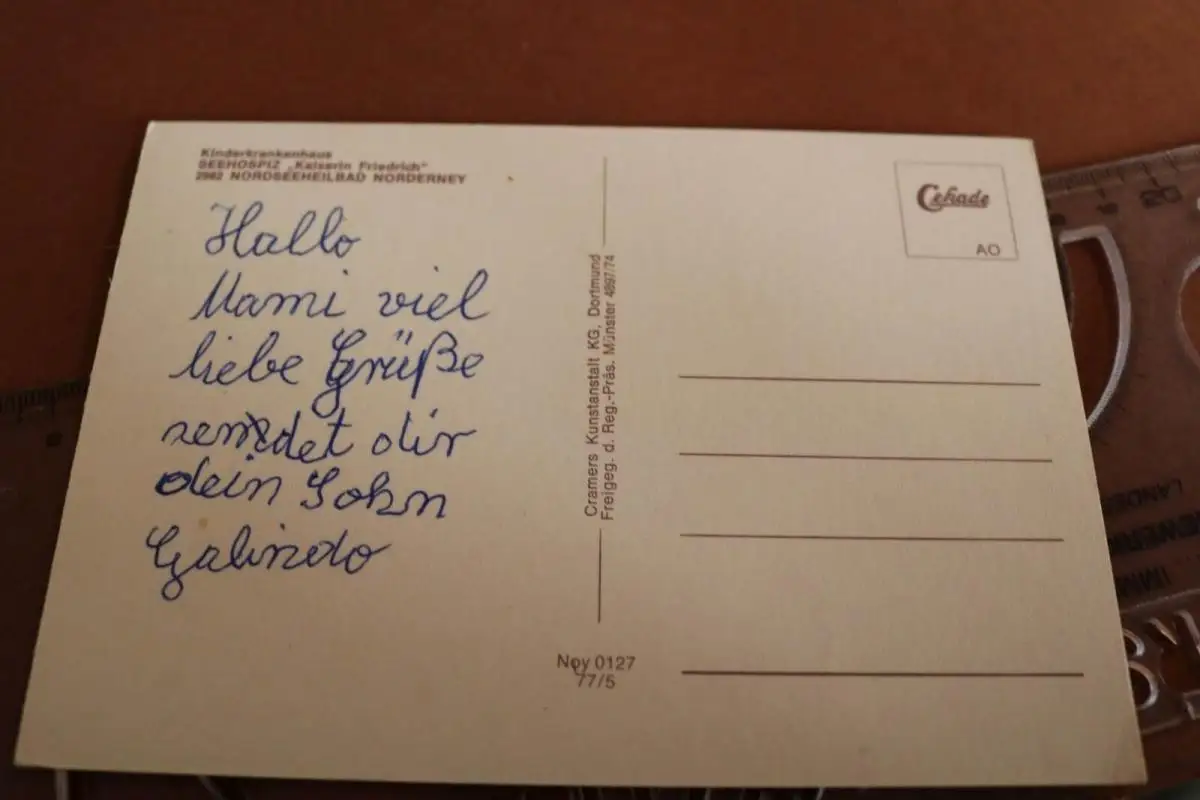 Kinderkrankenhaus
SEEHOSPIZ „Kaiserin Friedrich"
2982 NORDSEEHEILBAD NORDERNEY
Hallo
Mami viel
liebe Grüße
sendet dir
dein Sohn
Galindo
Cramers Kunstanstalt KG, Dortmund
Freigeg. d. Reg.-Präs. Münster 4897/74
Noy 0127
77/5
Cekade
AO